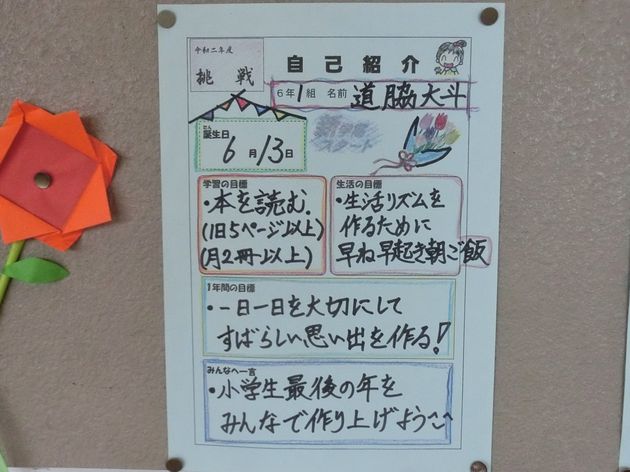 令和二年度
挑戦
自己紹介
6年1組 名前 道脇大斗
たん
誕生日
6月13日
新学期
スタート
学習の目標
・本を読む.
(1日5ページ以上)
(月2冊以上)
生活の目標
・生活リズムを
作るために
早ね早起き朝ご飯
1年間の目標
・一日一日を大切にして
すばらしい思い出を作る!
みんなへ一言
・小学生最後の年を
みんなで作り上げよう